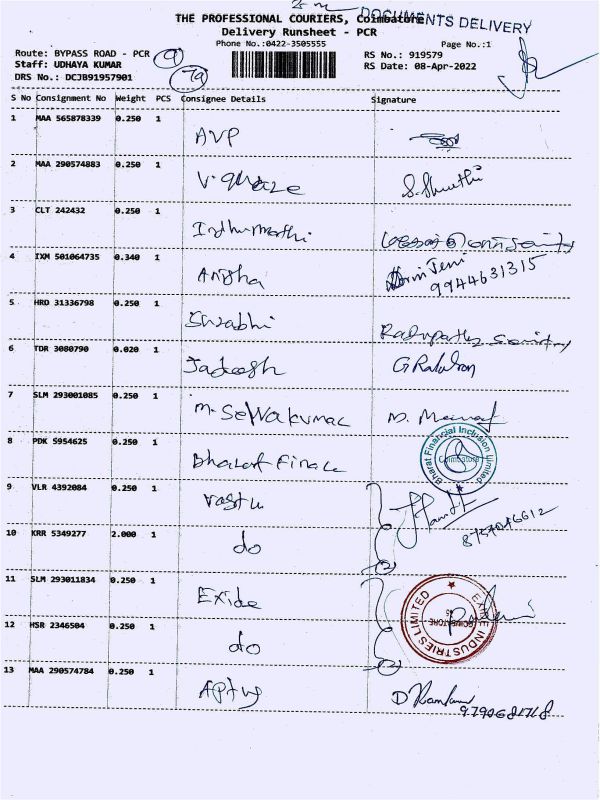 THE PROFESSIONAL COURIERS, Coimbatore
DOCUMENTS DELIVERY
Delivery Runsheet - PCR
Phone No.:0422-3505555
Page No.:1
Route: BYPASS ROAD - PCR
Staff: UDHAYA KUMAR
DRS No.: DCJB91957901
RS No.: 919579
RS Date: 08-Apr-2022
S No Consignment No Weight PCS Consignee Details Signature
1 MAA 565878339 0.250 1 AVP
2 MAA 290574883 0.250 1 S. Shruthi
3 CLT 242432 0.250 1 Indhumathi
4 IXM 501064735 0.340 1 Anisha 9944631315
5 HRD 31336798 0.250 1
6 TDR 3080790 0.020 1 Jadeesh
7 SLM 293001085 0.250 1 M. Selvakumar
8 PDK 5954625 0.250 1 Bharat Finance
Bharat Financial Inclusion Limited
Coimbatore
9 VLR 4392084 0.250 1 Vastu
10 KRR 5349277 2.000 1 do
11 SLM 293011834 0.250 1 Exide
EXIDE INDUSTRIES LIMITED
COIMBATORE
12 HSR 2346504 0.250 1 do
13 MAA 290574784 0.250 1